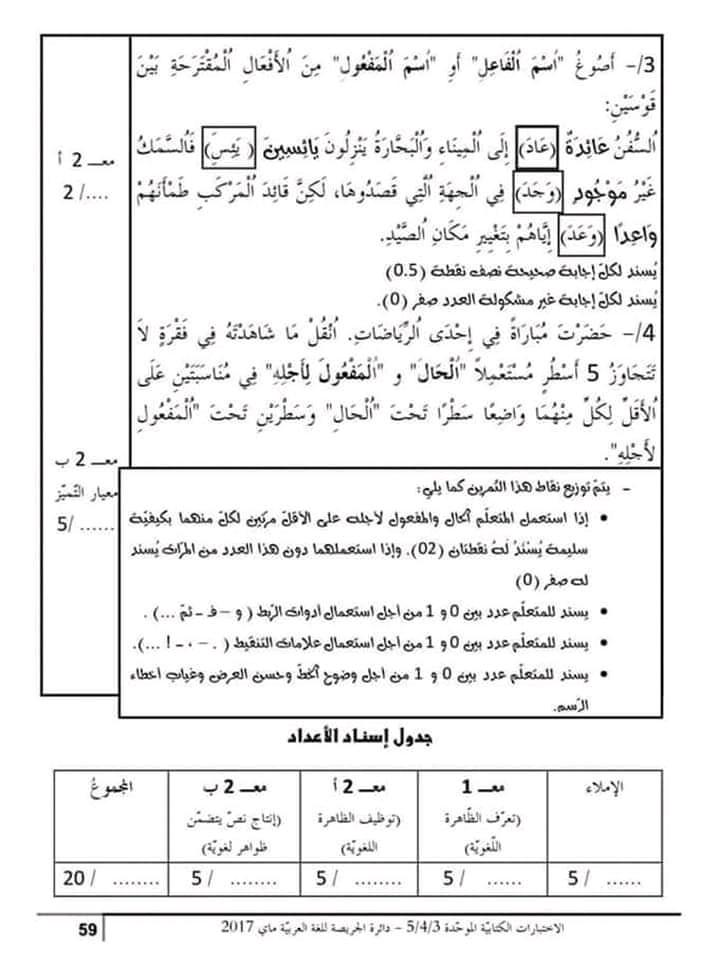 3/- أَصُوغُ "اُسْمَ اُلْفَاعِلِ" أَوِ "اُسْمَ اُلْمَفْعُولِ" مِنَ اُلْأَفْعَالِ اُلْمُقْتَرَحَةِ بَيْنَ
قَوْسَيْنِ:
اُلسُّفُنُ عَائِدَةٌ (عَادَ) إِلَى اُلْمِينَاءِ وَاُلْبَحَّارَةُ يَنْزِلُونَ يَائِسِينَ ( يَئِسَ) فَاُلسَّمَكُ
غَيْرُ مَوْجُودٍ (وَجَدَ) فِي اُلْجِهَةِ اُلَّتِي قَصَدُوهَا، لَكِنَّ قَائِدَ اُلْمَرْكَبِ طَمْأَنَهُمْ
وَاعِدًا (وَعَدَ) إِيَّاهُمْ بِتَغْيِيرِ مَكَانِ اُلصَّيْدِ.
معـ 2 أ
2 /....
يُسند لكلّ إجابة صحيحة نصف نقطة (0.5)
يُسند لكلّ إجابة غير مشكولة العدد صفر (0).
4/- حَضَرْتَ مُبَارَاةً فِي إِحْدَى اُلرِّيَاضَاتِ. اُنْقُلْ مَا شَاهَدْتَهُ فِي فَقْرَةٍ لاَ
تَتَجَاوَزُ 5 أَسْطُرٍ مُسْتَعْمِلاً "اُلْحَالَ" و "اُلْمَفْعُولَ لِأَجْلِهِ" فِي مُنَاسَبَتَيْنِ عَلَى
اُلْأَقَلِّ لِكُلٍّ مِنْهُمَا وَاضِعًا سَطْرًا تَحْتَ "اُلْحَالِ" وَسَطْرَيْنِ تَحْتَ "اُلْمَفْعُولِ
لِأَجْلِهِ".
معـ 2 ب
معيار التّميّز
5/ ......
- يتمّ توزيع نقاط هذا التّمرين كما يلي:
• إذا استعمل المتعلّم الحال والمفعول لأجله على الأقلّ مرّتين لكلّ منهما بكيفيّة
سليمة يُسْنَدُ لَهُ نقطتان (02). وإذا استعملهما دون هذا العدد من المرّات يُسند
له صفر (0)
• يسند للمتعلّم عدد بين 0 و 1 من أجل استعمال أدوات الرّبط ( و – فـ - ثمّ ...) .
• يسند للمتعلّم عدد بين 0 و 1 من أجل استعمال علامات التنقيط ( . – ، - ! ...).
• يسند للمتعلّم عدد بين 0 و 1 من أجل وضوح الخطّ وحسن العرض وغياب أخطاء
الرّسم.
جدول إسناد الأعداد
الإملاء معـ 1 معـ 2 أ معـ 2 ب المجموعُ
(تعرّف الظّاهرة (توظيف الظاهرة (إنتاج نصّ يتضمّن
اللّغويّة) اللغويّة) ظواهر لغويّة)
5 / ...... 5 / ...... 5 / ........ 5 / ........ 20 / ........
الاختبارات الكتابيّة الموحّدة 5/4/3 – دائرة الجريصة للغة العربيّة ماي 2017
59